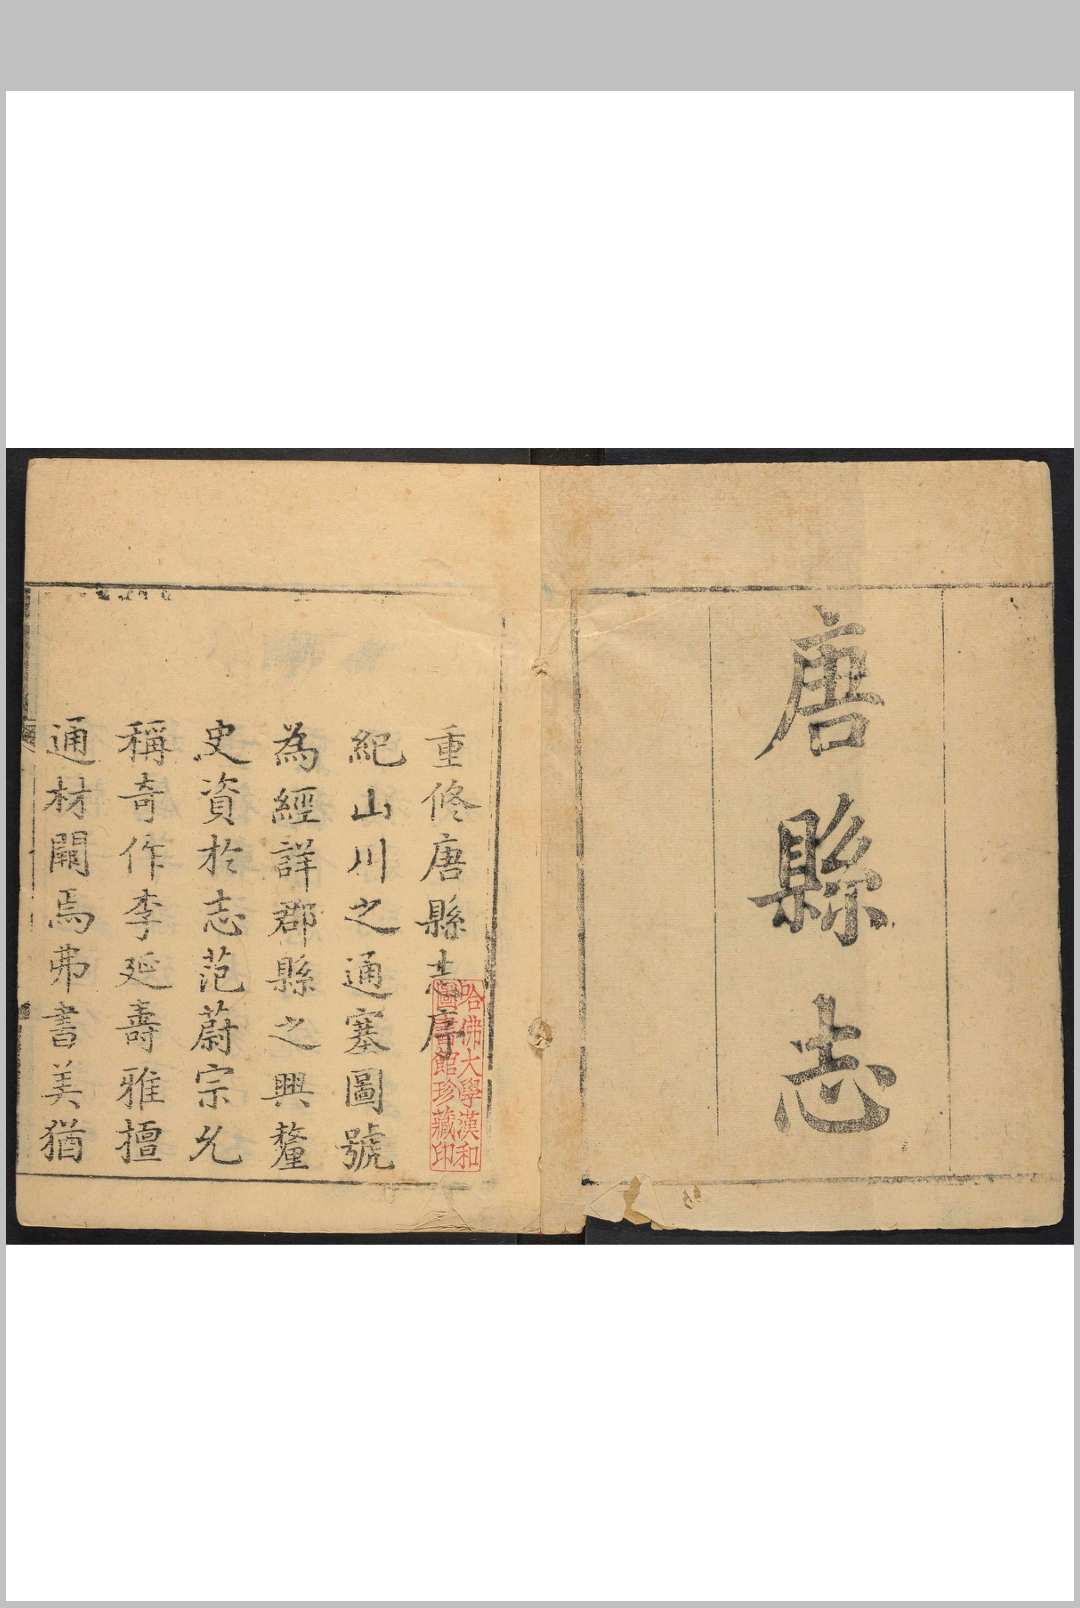 唐縣志
重修唐縣志序
紀山川之通塞圖號
為經詳郡縣之興釐
史資於志范蔚宗允
稱奇作李延壽雅擅
通材闕焉弗書美猶
哈佛大學漢和
圖書館珍藏印